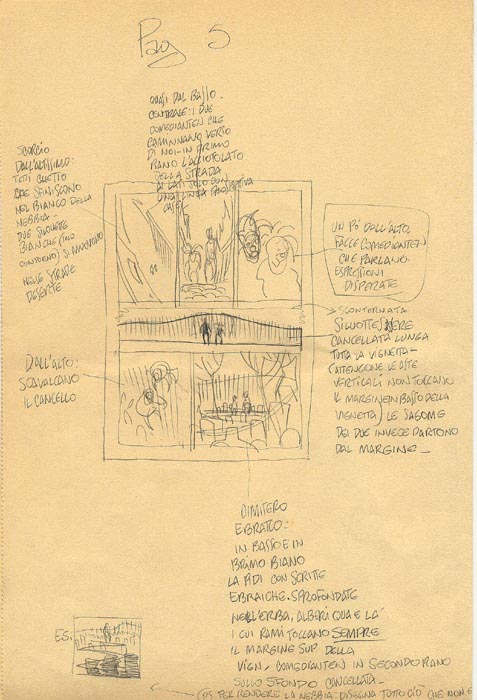 Pag 5
QUASI DAL BASSO.
CENTRALE: I DUE
COMEDIANTEN CHE
CAMMINANO VERSO
DI NOI - IN PRIMO
PIANO L'ACCIOTOLATO
DELLA STRADA
AI LATI SOLO CON
UNA LINEA PROSPETTIVA
CASE
SCORCIO
DALL'ALTISSIMO:
TETTI GHETTO
CHE SFINISCONO
NEL BIANCO DELLA
NEBBIA.
DUE SILOUETTE
BIANCHE (SOLO
CONTORNO) SI MUOVONO
NELLE STRADE
DESERTE
UN PO' DALL'ALTO.
FACCE COMEDIANTEN
CHE PARLANO
ESPRESSIONI
DISPERATE
SCONTORNATA
SILUOTTES NERE
CANCELLATA LUNGA
TUTTA LA VIGNETTA -
(ATTENZIONE LE ASTE
VERTICALI NON TOCCANO
IL MARGINE IN BASSO DELLA
VIGNETTA) LE SAGOME
DEI DUE INVECE PARTONO
DAL MARGINE -
DALL'ALTO:
SCAVALCANO
IL CANCELLO
CIMITERO
EBRAICO:
IN BASSO E IN
PRIMO PIANO
LAPIDI CON SCRITTE
EBRAICHE SPROFONDATE
NELL'ERBA, ALBERI QUA E LÀ
I CUI RAMI TOCCANO SEMPRE
IL MARGINE SUP. DELLA
VIGN. COMEDIANTEN IN SECONDO PIANO
SULLO SFONDO CANCELLATA -
ES.
(PS PER RENDERE LA NEBBIA: DISEGNA TUTTO CIÒ CHE NON È